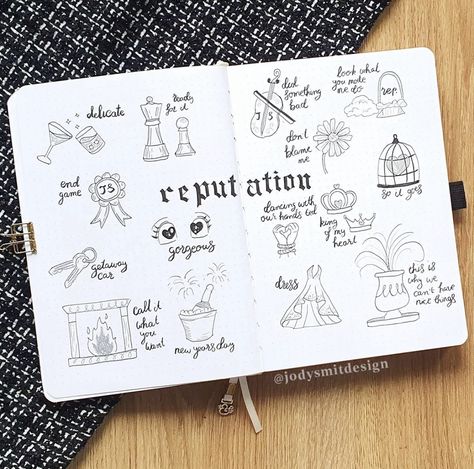 delicate
Ready
for it
end
game
JS
reputation
gorgeous
getaway
car
call it
what
you
want
new years day
did
something
bad
JS
look what
you made
me do
rep.
don't
blame
me
so it goes
dancing with
our hands tied
king
of my
heart
dress
this is
why we
can't have
nice things
@jodysmitdesign